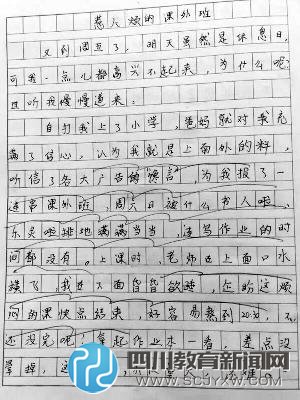 惹人烦的课外班
又到周五了，明天虽然是休息日，
可我一点儿都高兴不起来，为什么呢？
且听我慢慢道来。
自打我上了小学，爸妈就对我充
满了信心，认为我就是上面外的料，
听信了各大广告的谗言，为我报了一
连串课外班，周六日被什么书人啦，
乐灵啦排地满满当当，连写作业的时
间都没有。上课时，老师在上面口水
横飞，我在下面昏昏欲睡，在盼这烦
闷的课快点结束，好容易熬到20:30，
还没完呢！拿起作业本一看，差点没
晕掉，这
四川教育新闻网
WWW.SCJYXW.COM